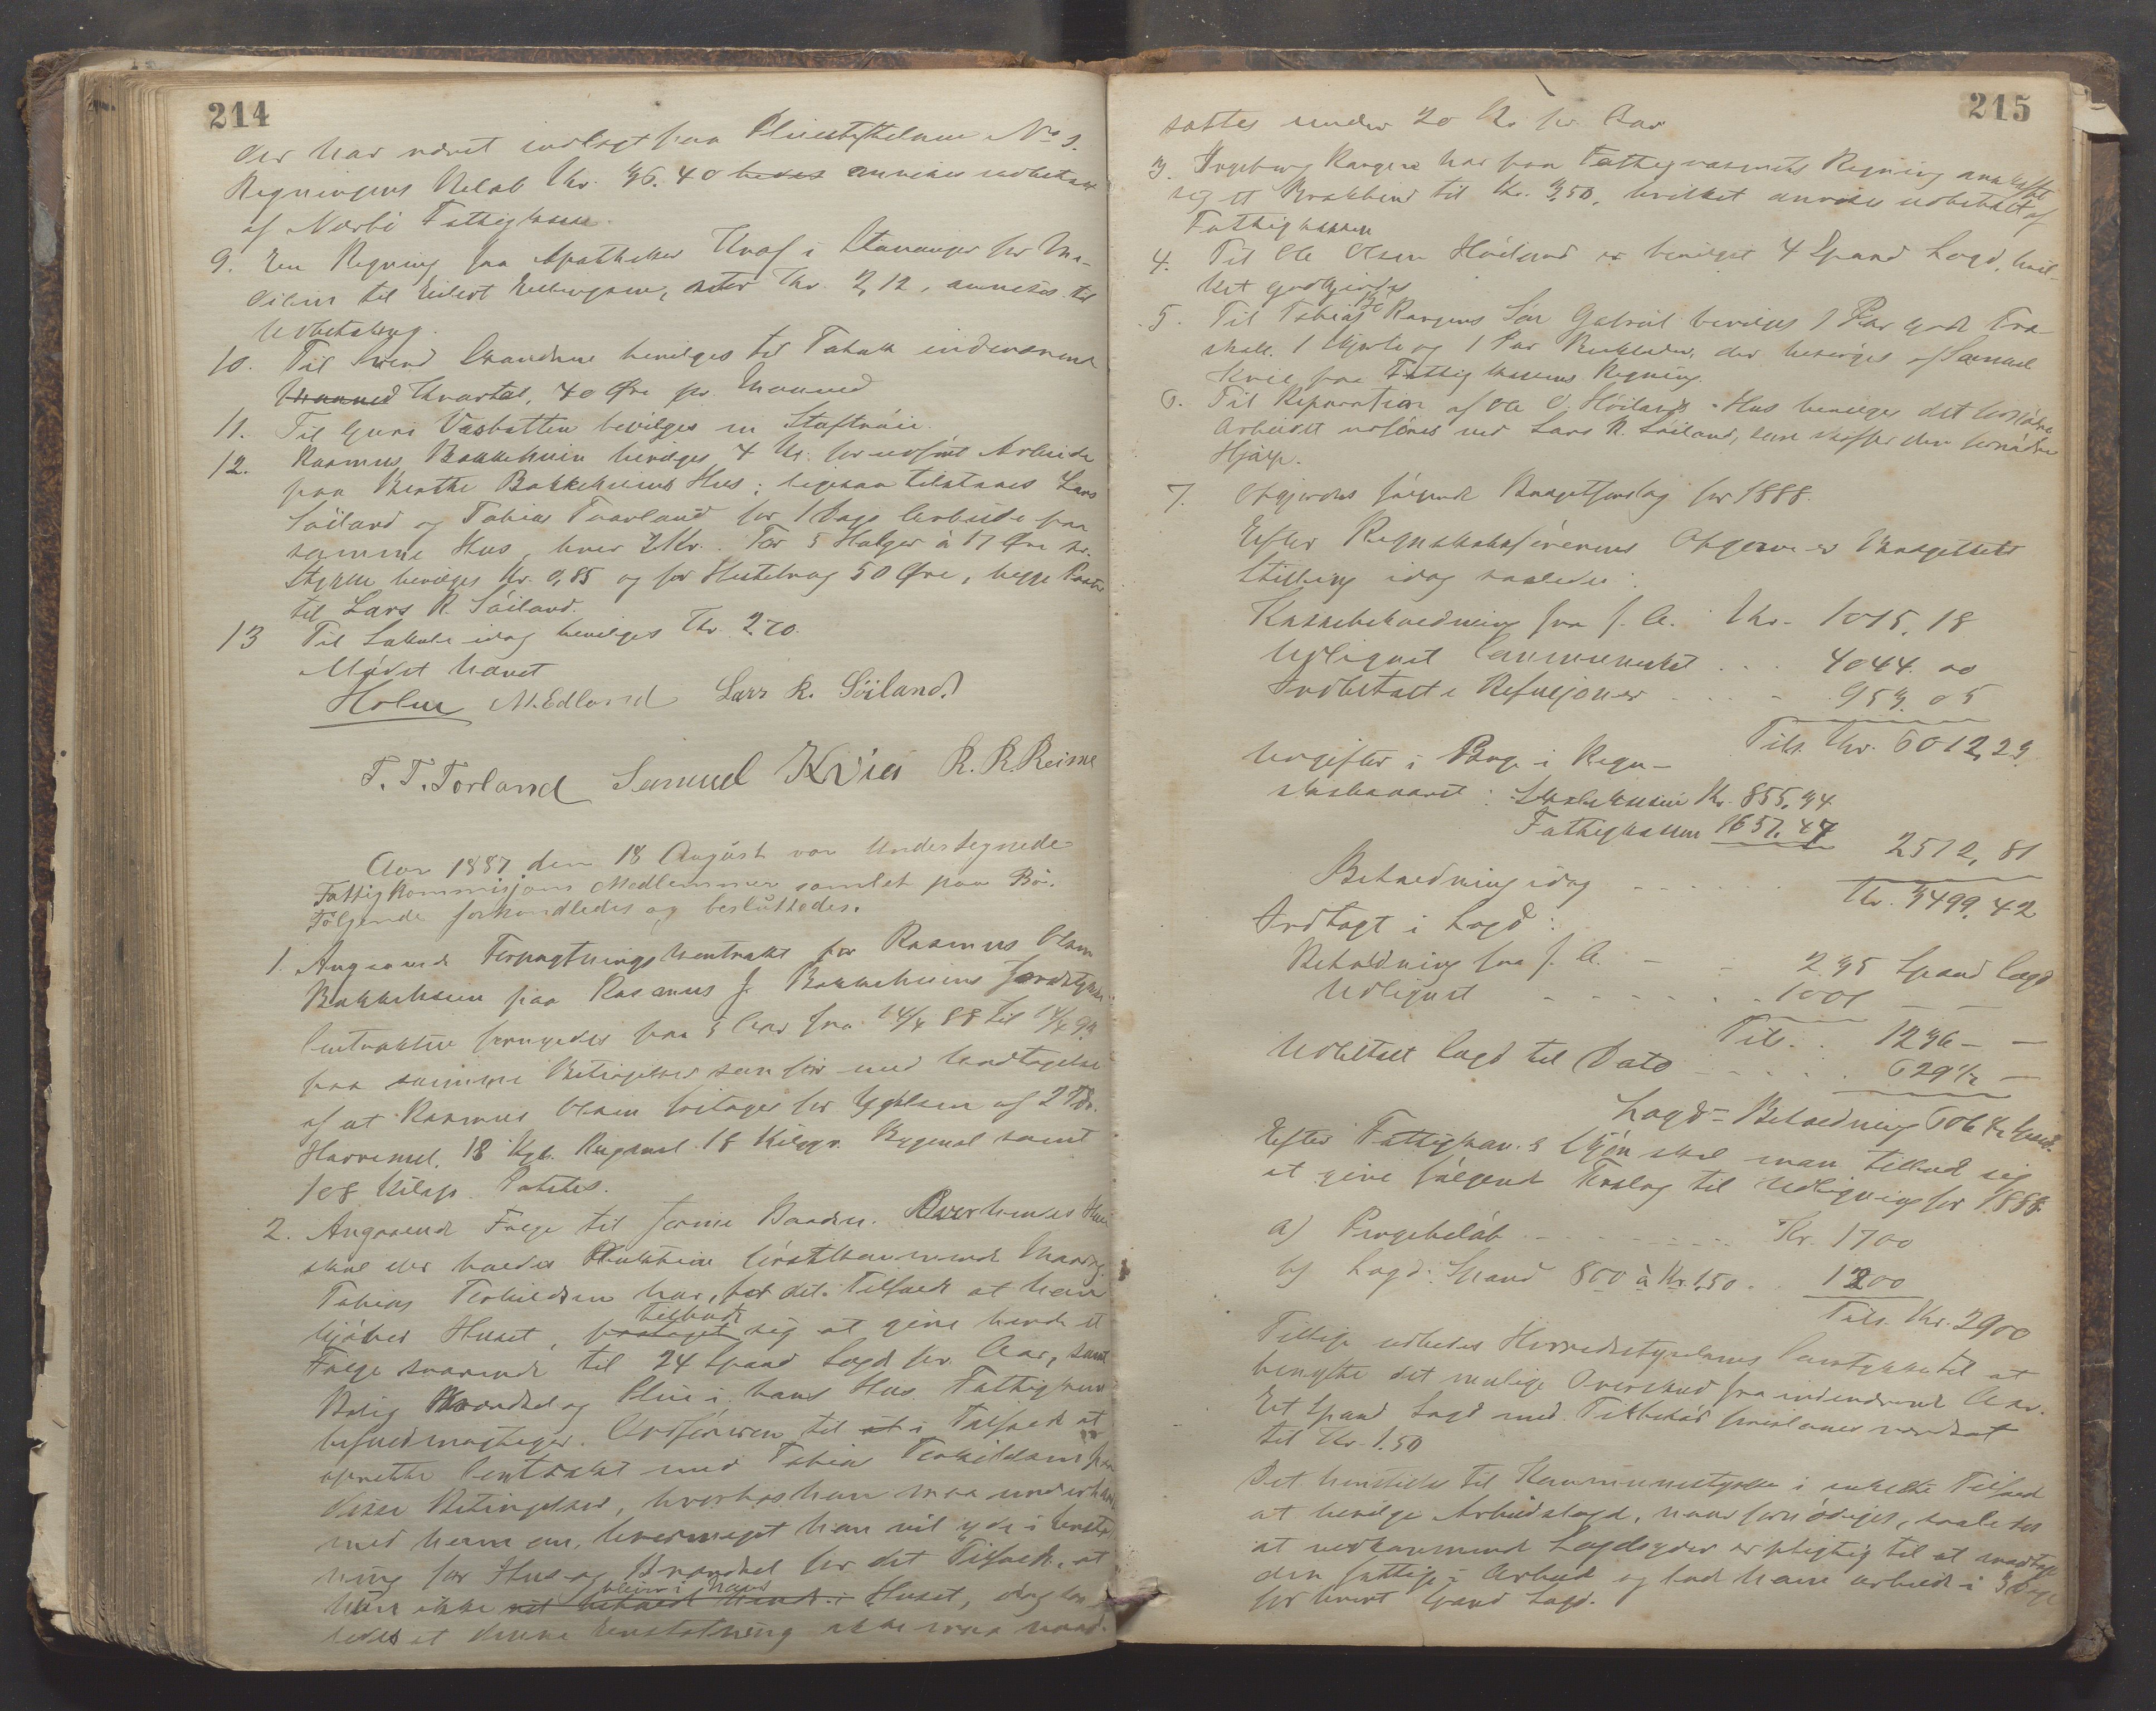 214
der har været indlagt paa Pleiestiftelsen No 3.
Regningens Beløb Kr. 36.40 bedes anvises udbetalt
af Nærbø Fattigkasse.
9. En Regning fra Apotheker Knaf i Stavanger for Me-
dicin til Eilert Ellingsen, stor Kr. 2,12, anvistes til
Udbetaling.
10. Til Svend bevilges til Tobak indeværende
Maaned Kvartal, 40 Øre pr. Maaned
11. Til Guri Vasbotten bevilges en
12. Rasmus Bakkehuin bevilges 4 Kr. for udført Arbeide
paa Berthe Bakkehuins Hus; ligesaa tilstaaes Lars
Söiland og Tobias Tuarland for 1 Dags Arbeide paa
samme Hus, hver 2 Kr. For 5 Halger à 17 Øre pr.
Stykke bevilges Kr. 0,85 og for Hestebrug 50 Øre, begge Poster
til Lars R. Söiland.
13 Til Lokale idag bevilges Kr. 2.70.
Mødet hævet
Holm M. Edland Lars R. Söiland
T. T. Torland Samuel Kvia R. R. Reime
Aar 1887 den 18 August var Undertegnede
Fattigkommisjons Medlemmer samlet paa Bö.
Følgende forhandledes og besluttedes.
1. Angaaende Forpagtningskontrakt for Rasmus Olsen
Bakkehuin paa Rasmus J. Bakkehuins Jordstykke.
Contrakten fornyedes paa 5 Aar fra 14/4 88 til 14/4 93
paa samme Betingelser som før med Undtagelse
af at Rasmus Olsen fritages for Ydelsen af 2 Tdr.
Havremel, 18 Kgr. Rugmel 18 Kilogr. Bygmel samt
108 Kilogr. Potetes.
2. Angaaende Folge til Jorine Baadsn. Over hendes Hus
skal der holdes Auktion førstkommende Mandag.
Tobias Torkildsen har, for det Tilfælde at han
kjøber Huset, forlaget tilbudt sig at give hende et
Folge svarende til 24 Spand Lagd pr. Aar, samt
Bolig Brændsel og Pleie i hans Hus. Fattigkom
befuldmægtiger Ordføreren til at i Tilfælde at
oprette Contrakt med Tobias Torkildsen paa
disse Betingelser, hvorhos han maa underhandle
med ham om, hvormeget han vil yde i Erstat-
ning for Hus og Brændsel for det Tilfælde, at
hun ikke vil beholdt hende i bliver i hans Huset, dog saa-
ledes at denne Erstatning ikke maa
215
sættes under 20 Kr. pr. Aar
3. Ingeborg Rangen har paa Fattigvæsenets Regning anskaffet
sig et Brokbind til Kr. 3,50, hvilket anvises udbetalt af
Fattigkassen
4. Til Ole Olsen Höiland er bevilget 4 Spand Lagd, hvil-
ket godkjendes
5. Til Tobias Bö Rangens Søn Gabriel bevilges 1 Par gode Træ-
skoe, 1 Skjorte og 1 Par Buxer, der besørges af Samuel
Kvie paa Fattigkassens Regning.
6. Til Reparation af Ole O. Höilands Hus bevilges det fornødne
Arbeidet udføres ved Lars R. Söiland, som skaffer den fornødne
Hjælp.
7. Opgjordes følgende Budgetforslag for 1888.
Efter Regnskabsførerens Opgave er Budgettets
Stilling idag saaledes:
Kassebeholdning fra f. A. Kr. 1015.18
Udlignet Communeskat . . . 4044.00
Indbetalte Refusjoner . . . . 953.05
Tils. Kr. 6012,23
Udgifter i Penge i Regn-
skabsaaret: Skolekassen Kr. 855,34
Fattigkassen 1657.47
2512,81
Beholdning idag . . . . . . Kr. 3499,42
Indtægt i Lagd:
Beholdning fra f. A. - - 235 Spand Lagd
Udlignet - - - - - - 1001 - -
Tils. . 1236 - -
Udbetalt Lagd til Dato - - - - . . 629 1/2 -
Lagd-Beholdning 606 1/2 Spand.
Efter Fattigkom.s Skjøn skal man tillade sig
at give følgende Forslag til Udligning for 1888.
a) Pengebeløb - - - - - - - - - Kr. 1700
b) Lagd: Spand 800 à Kr. 1.50 . 1200
Tils. Kr. 2900
Tillige udbedes Herredsstyrelsens Samtykke til at
benytte det mulige Overskud fra indeværende Aar.
Et Spand Lagd med Tilbehør foreslaaes værdsat
til Kr. 1.50
Det henstilles til Kommunestyrelsen i enkelte Tilfæld
at bevilge Arbeidslagd, naar fornødiges, saaledes
at vedkommende Lagdsyder er pligtig til at modtage
den fattige i Arbeid og lade ham arbeide i 3 Dage
for hvert Spand Lagd.